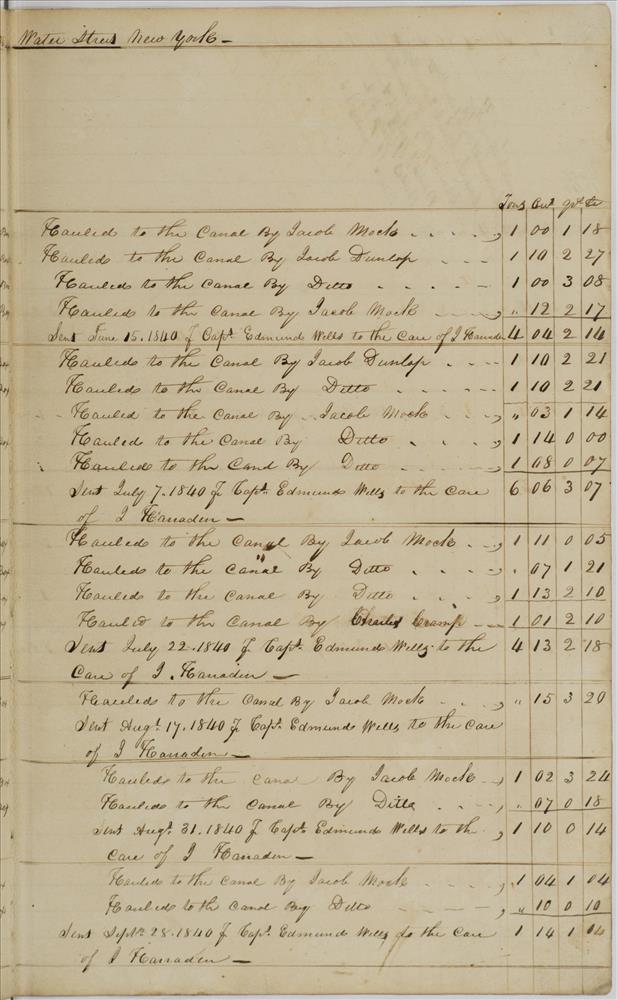 Water Street New York —
Tons Cwt qrs lbs
Hauled to the Canal By Jacob Mock - - - - , 1 00 1 18
Hauled to the Canal By Jacob Dunlop - - - 1 10 2 27
Hauled to the Canal By Ditto - - - - - 1 00 3 08
Hauled to the Canal By Jacob Mock - - - - , " 12 2 17
Sent June 15. 1840 f Capt. Edmund Wells to the Care of J Harraden 4 04 2 14
Hauled to the Canal By Jacob Dunlop - - - - 1 10 2 21
Hauled to the Canal By Ditto - - - - - - 1 10 2 21
- - Hauled to the Canal By Jacob Mock - - - , " 03 1 14
Hauled to the Canal By Ditto - - - , 1 14 0 00
Hauled to the Canal By Ditto - - - - - , 1 08 0 07
Sent July 7. 1840 f Capt. Edmund Wells to the Care 6 06 3 07
of J Harraden —
Hauled to the Canal By Jacob Mock - - , 1 11 0 05
Hauled to the Canal By Ditto - - - , " 07 1 21
Hauled to the Canal By Ditto - - - , 1 13 2 10
Hauled to the Canal By Charles Cramp - - 1 01 2 10
Sent July 22. 1840 f Capt. Edmund Wells to the 4 13 2 18
Care of J. Harraden —
Hauled to the Canal By Jacob Mock - - - , " 15 3 20
Sent Augt. 17. 1840 f Capt. Edmund Wells to the Care
of J Harraden —
Hauled to the Canal By Jacob Mock - , 1 02 3 24
Hauled to the Canal By Ditto - - - , " 07 0 18
Sent Augt. 31. 1840 f Capt. Edmund Wells to the , 1 10 0 14
Care of J Harraden —
Hauled to the Canal By Jacob Mock - - - - , 1 04 1 04
Hauled to the Canal By Ditto - - - - - , " 10 0 10
Sent Septr. 28. 1840 f Capt. Edmund Wells to the Care 1 14 1 14
of J Harraden —